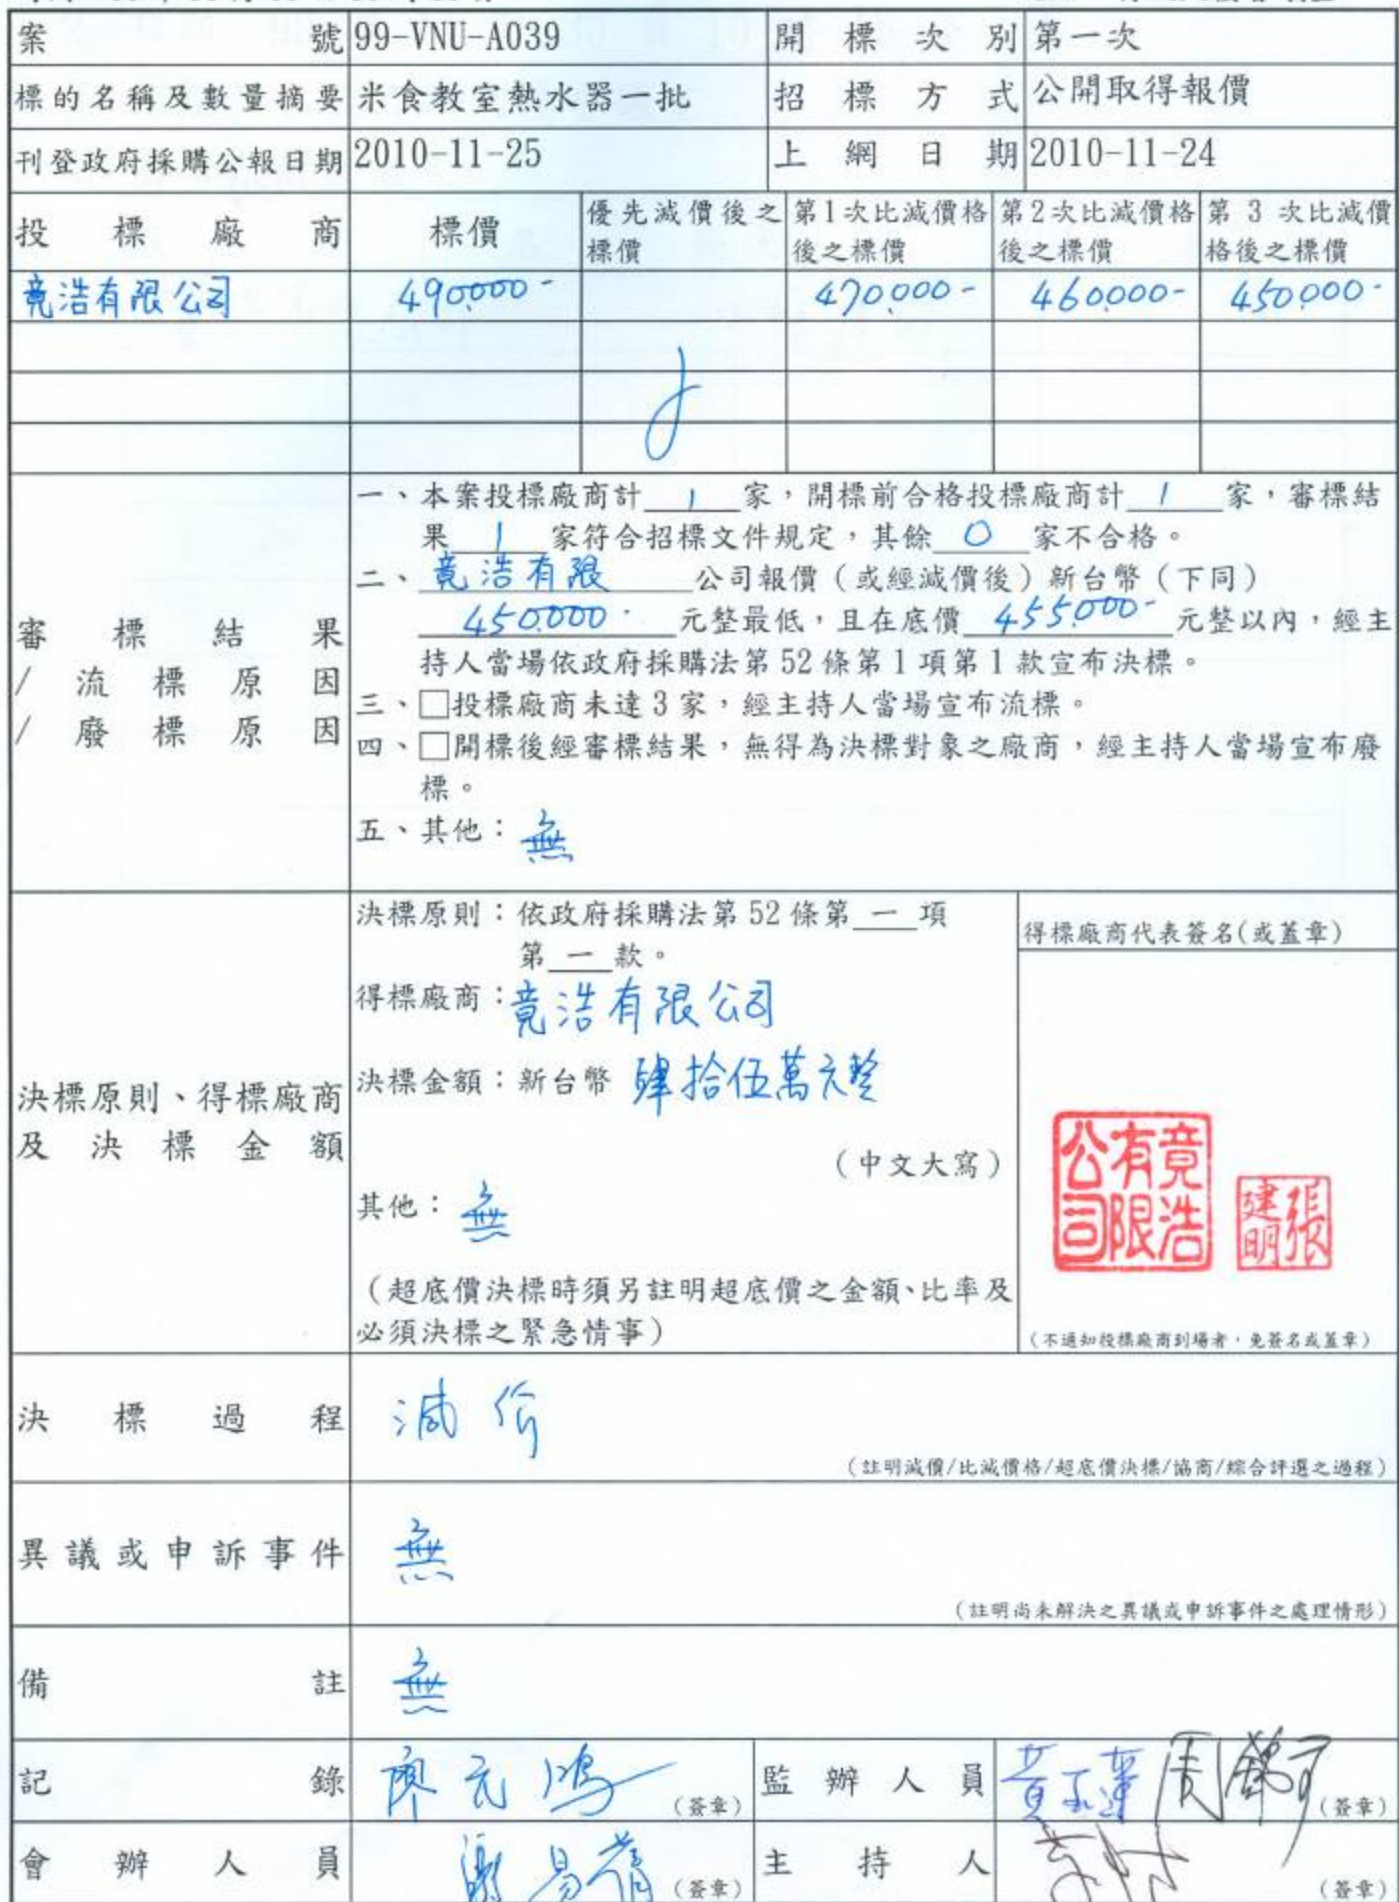 案號 99-VNU-A039 開標次別 第一次
標的名稱及數量摘要 米食教室熱水器一批 招標方式 公開取得報價
刊登政府採購公報日期 2010-11-25 上網日期 2010-11-24
投標廠商 標價 優先減價後之標價 第1次比減價格後之標價 第2次比減價格後之標價 第3次比減價格後之標價
竟浩有限公司 490,000- 470,000- 460,000- 450,000-
審標結果
/流標原因
/廢標原因
一、本案投標廠商計 1 家，開標前合格投標廠商計 1 家，審標結
果 1 家符合招標文件規定，其餘 0 家不合格。
二、竟浩有限 公司報價（或經減價後）新台幣（下同）
450,000- 元整最低，且在底價 455,000- 元整以內，經主
持人當場依政府採購法第52條第1項第1款宣布決標。
三、□投標廠商未達3家，經主持人當場宣布流標。
四、□開標後經審標結果，無得為決標對象之廠商，經主持人當場宣布廢
標。
五、其他：無
決標原則、得標廠商
及決標金額
決標原則：依政府採購法第52條第 一 項
第 一 款。
得標廠商：竟浩有限公司
決標金額：新台幣 肆拾伍萬元整
（中文大寫）
其他：無
（超底價決標時須另註明超底價之金額、比率及
必須決標之緊急情事）
得標廠商代表簽名(或蓋章)
竟浩有限公司
張建明
（不通知投標廠商到場者，免簽名或蓋章）
決標過程 減價
（註明減價/比減價格/超底價決標/協商/綜合評選之過程）
異議或申訴事件 無
（註明尚未解決之異議或申訴事件之處理情形）
備註 無
記錄 廖元鴻 （簽章） 監辦人員 （簽章）
會辦人員 （簽章） 主持人 （簽章）